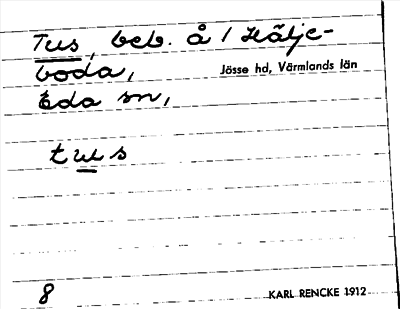 Tus, beb. å 1 Hälje-
boda,
Jösse hd, Värmlands län
Eda sn,
tus
8
KARL RENCKE 1912